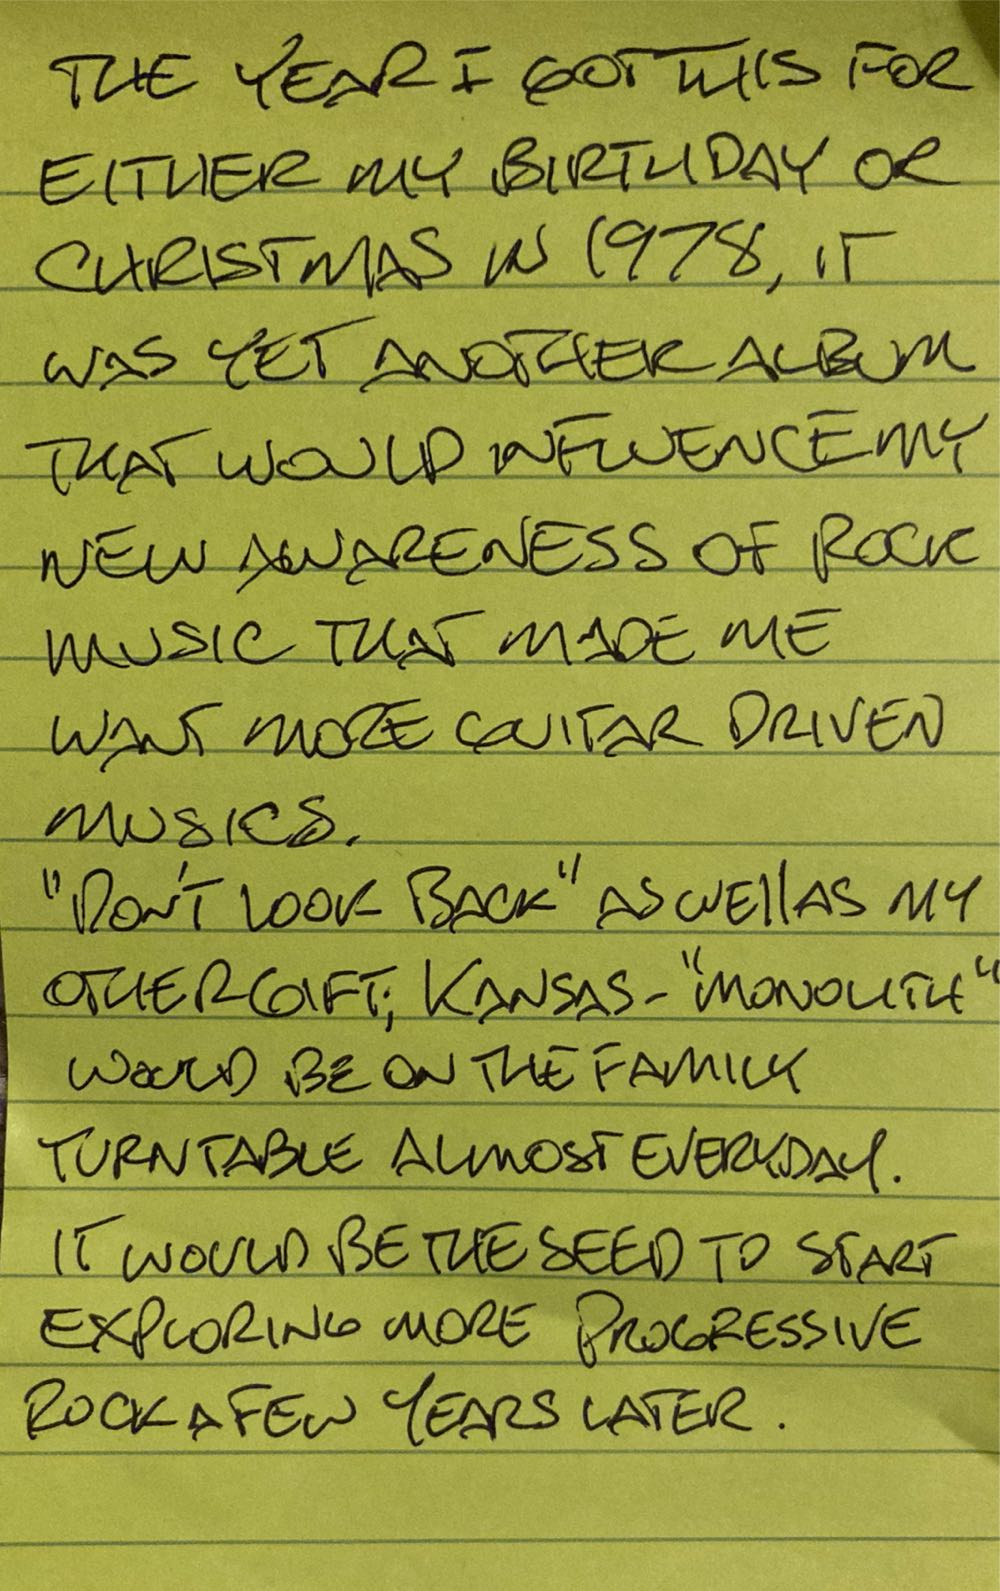 THE YEAR I GOT THIS FOR
EITHER MY BIRTHDAY OR
CHRISTMAS IN 1978, IT
WAS YET ANOTHER ALBUM
THAT WOULD INFLUENCE MY
NEW AWARENESS OF ROCK
MUSIC THAT MADE ME
WANT MORE GUITAR DRIVEN
MUSICS.
"DON'T LOOK BACK" AS WELL AS MY
OTHER GIFT; KANSAS - "MONOLITH"
WOULD BE ON THE FAMILY
TURNTABLE ALMOST EVERYDAY.
IT WOULD BE THE SEED TO START
EXPLORING MORE PROGRESSIVE
ROCK A FEW YEARS LATER.